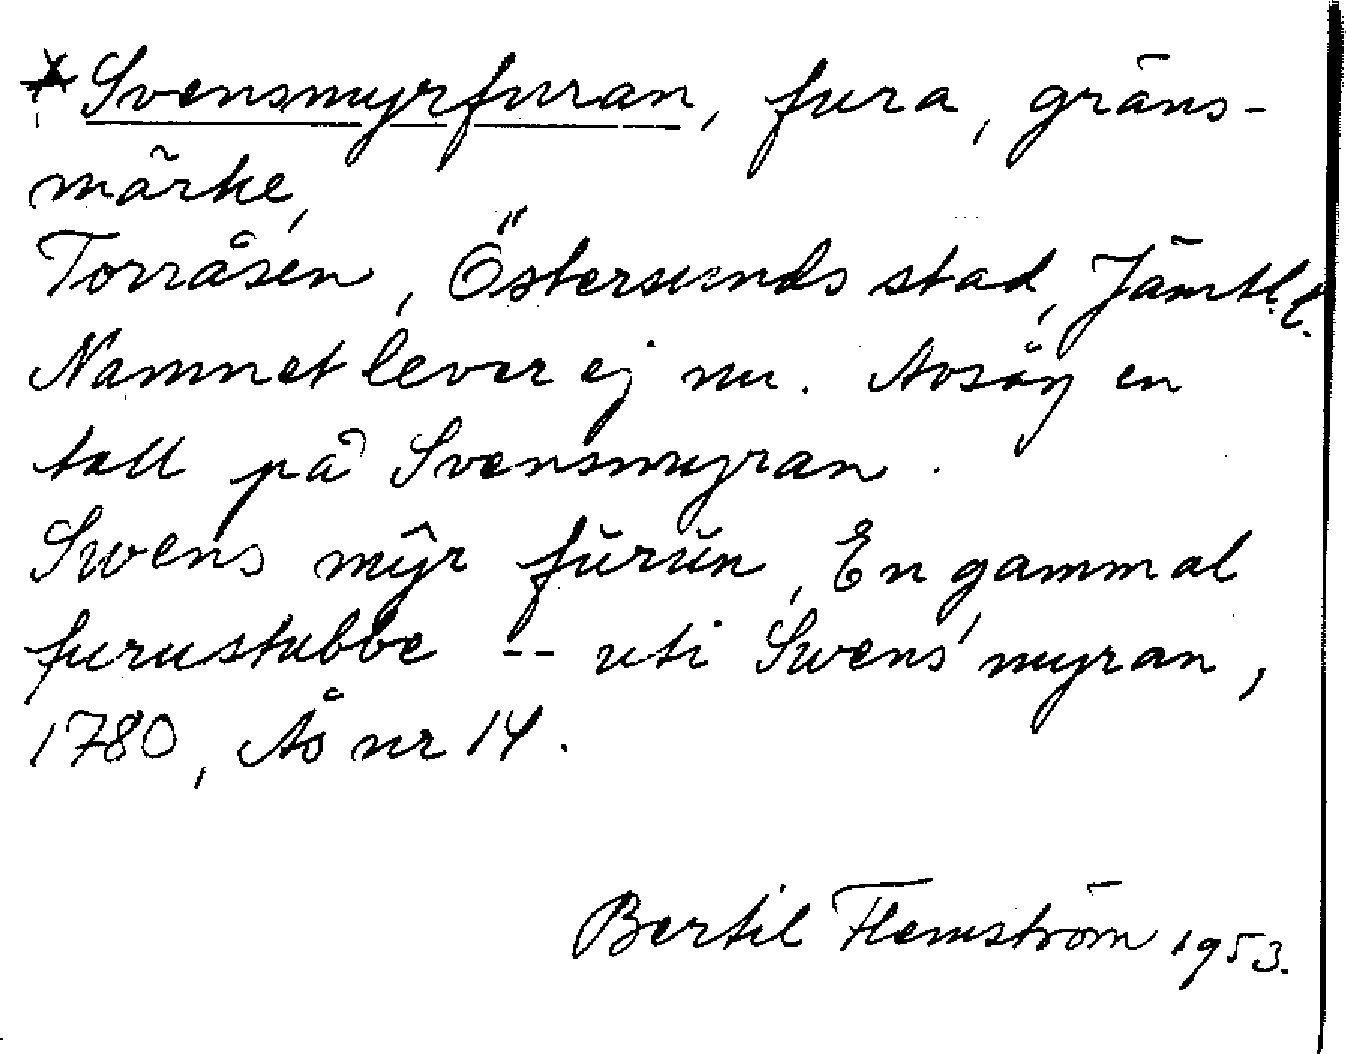 * Svensmyrfuran, fura, gräns-
märke,
Torråsen, Östersunds stad, Jämtl. l.
Namnet lever ej nu. Avsåg en
tall på Svensmyran.
Swens mŷr fŭrŭn, En gammal
furustubbe -- uti Swens myran,
1780, Ås nr 14.
Bertil Flemström 1953.